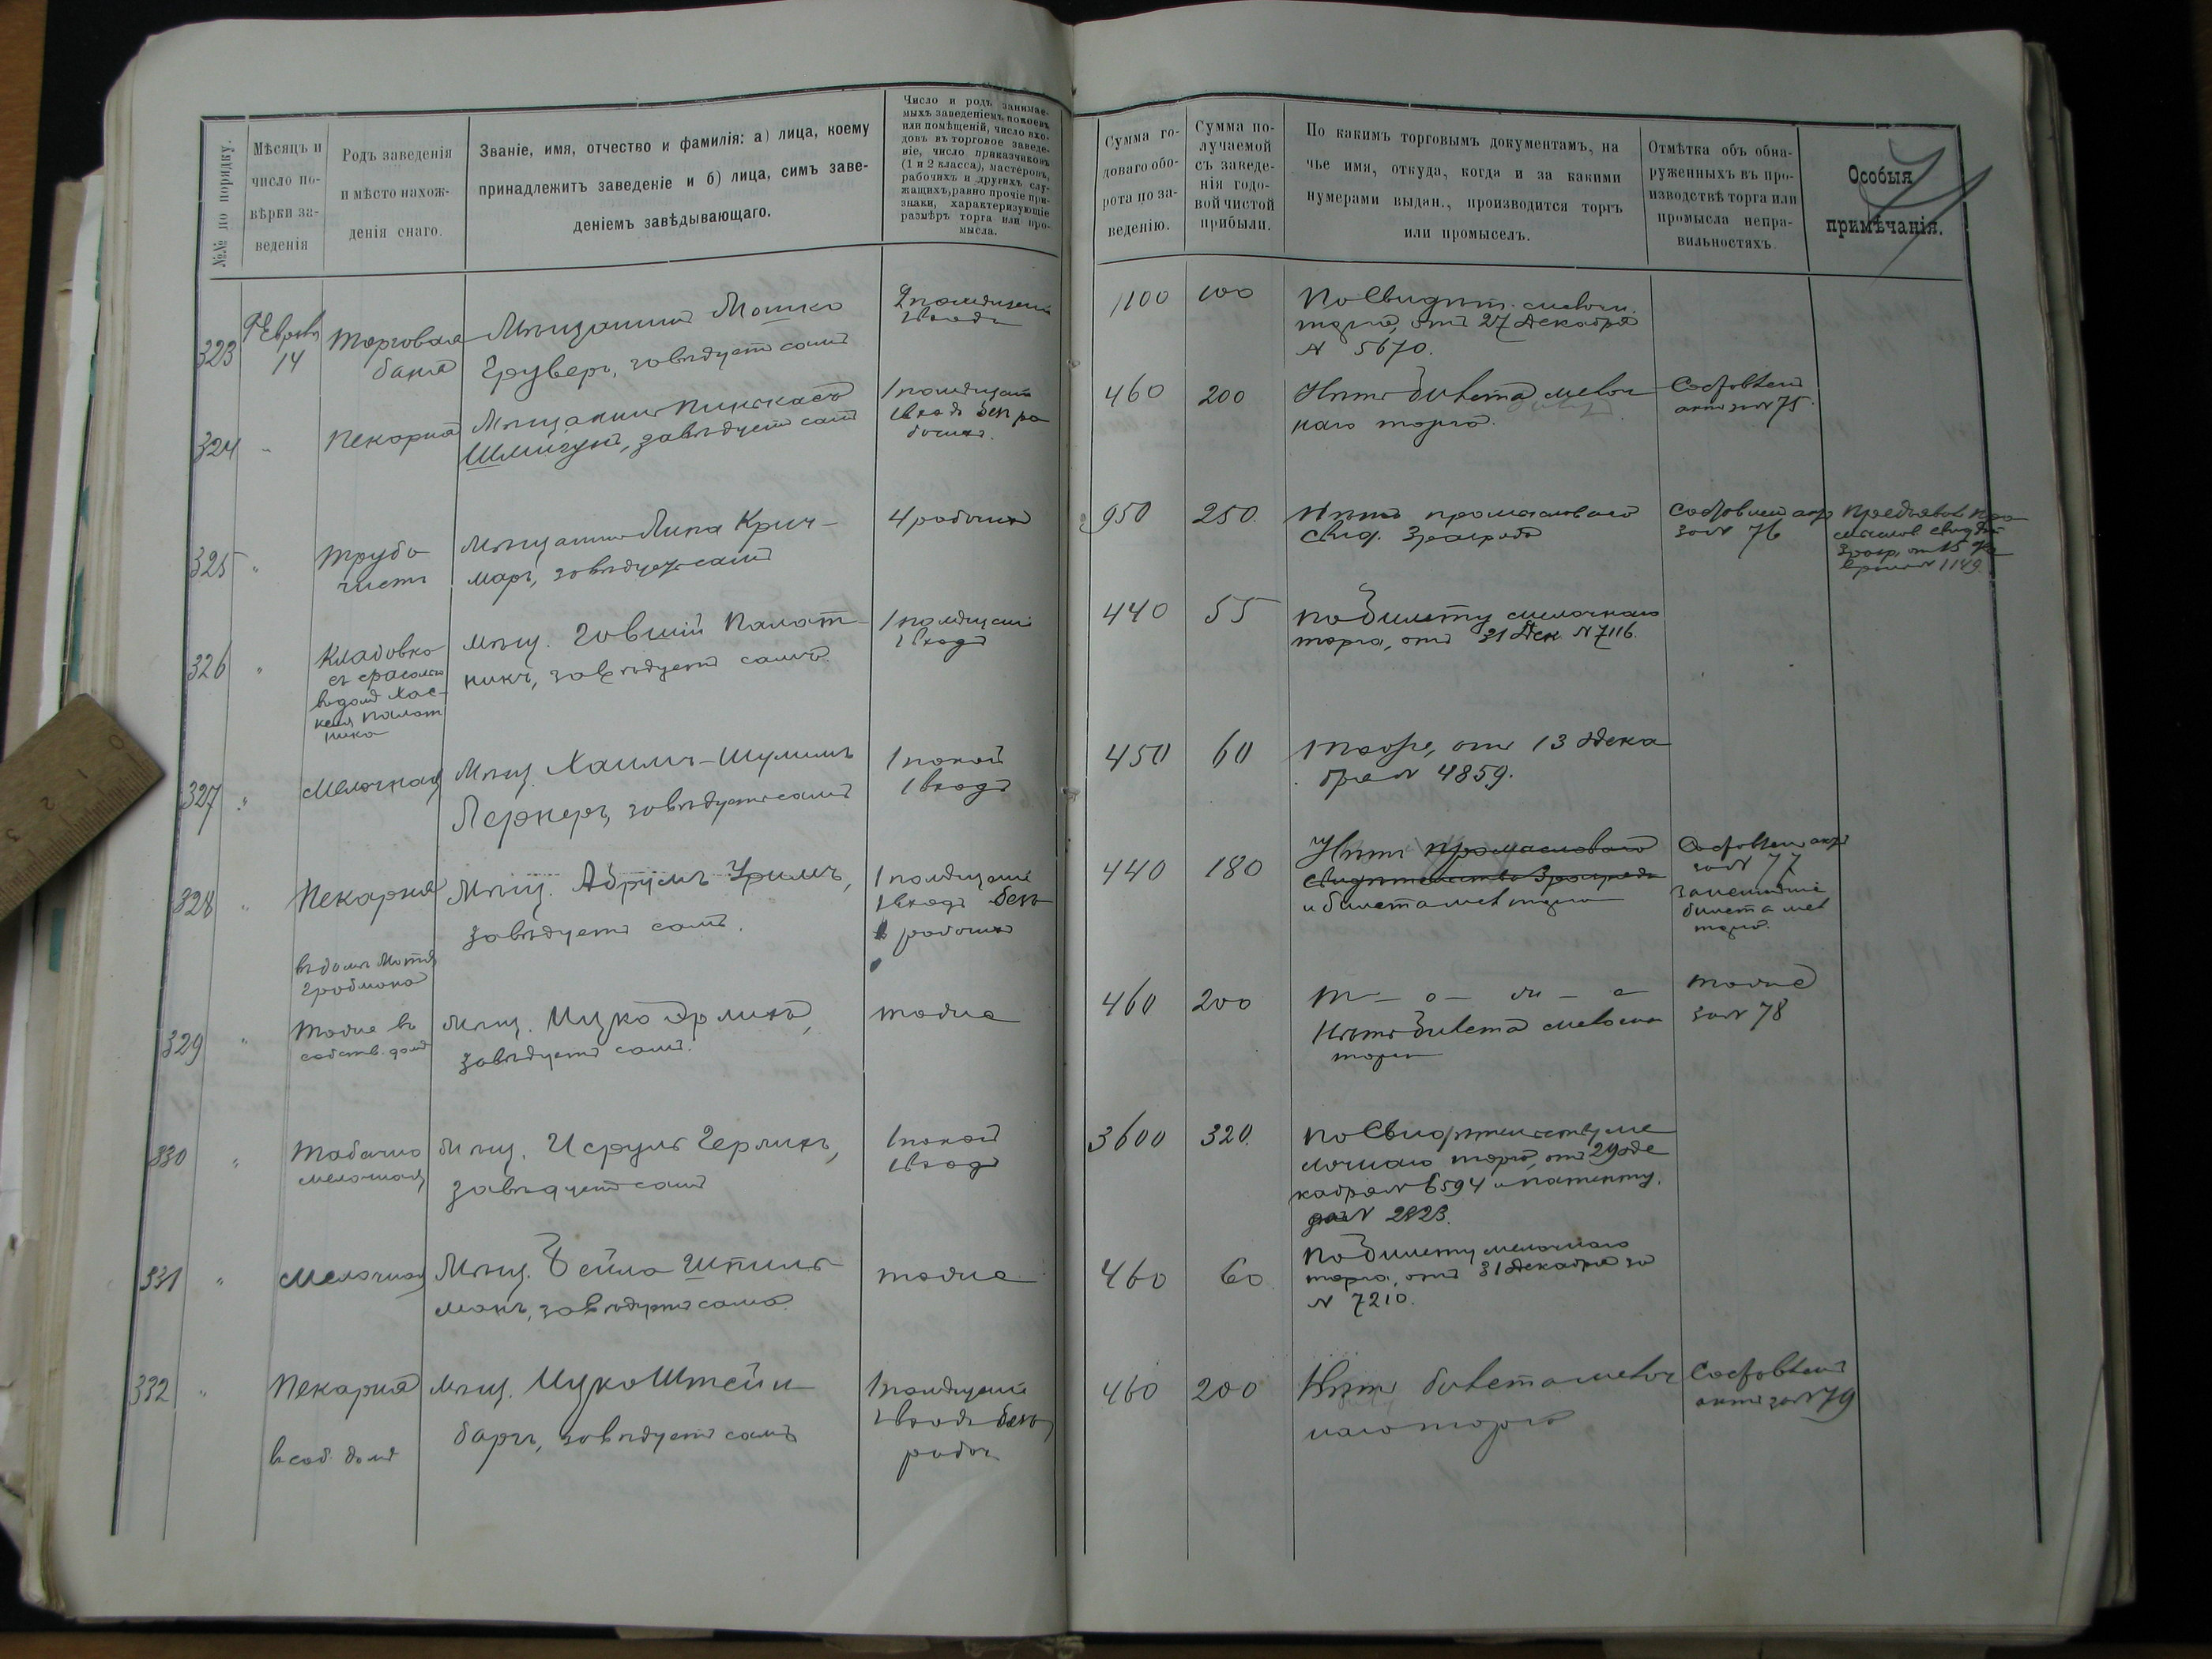 №№ по порядку.
Мѣсяцъ и
число по-
вѣрки за-
веденія
Родъ заведенія
и мѣсто нахож-
денія онаго.
Званіе, имя, отчество и фамилія: а) лица, коему
принадлежитъ заведеніе и б) лица, симъ заве-
деніемъ завѣдывающаго.
Число и родъ занимае-
мыхъ заведеніемъ покоевъ
или помѣщеній, число вхо-
довъ въ торговое заведе-
ніе, число приказчиковъ
(1 и 2 класса), мастеровъ,
рабочихъ и другихъ слу-
жащихъ, равно прочіе при-
знаки, характеризующіе
размѣръ торга или про-
мысла.
Сумма го-
доваго обо-
рота по за-
веденію.
Сумма по-
лучаемой
съ заведе-
нія годо-
вой чистой
прибыли.
По какимъ торговымъ документамъ, на
чье имя, откуда, когда и за какими
нумерами выдан., производится торгъ
или промыселъ.
Отмѣтка объ обна-
руженныхъ въ про-
изводствѣ торга или
промысла непра-
вильностяхъ.
Особыя
примѣчанія.
323
Февраля
14
Торговая
баня
Мѣщанинъ Мошко
Груверъ, завѣдуетъ самъ
2 помѣщенія
1 входъ
1100
100
По Свидѣт. мелочн.
торга, отъ 27 Декабря
№ 5670.
324
"
Пекарня
Мѣщанинъ Пинкасъ
Шмигунъ, завѣдуетъ самъ
1 помѣщеніе
1 входъ безъ ра
бочихъ.
460
200
Нѣтъ билета мелоч
наго торга.
Составленъ
актъ за № 75.
325
"
Трубо
чистъ
Мѣщанинъ Липа Крич-
маръ, завѣдуетъ самъ
4 рабочихъ
950
250.
Нѣтъ промысловаго
Свид. 3 разряда
Составленъ актъ
за № 76
Предъявлено про
мыслов. свидѣт.
3 разр. отъ 15 Фе
враля № 1149.
326
"
Кладовка
въ домѣ Хас-
келя Палат
ника
мѣщ. Говшій Палат-
никъ, завѣдуетъ самъ.
1 помѣщеніе
1 входъ
440
55
по билету мелочнаго
торга, отъ 31 Дек. № 7116.
327
"
Мелочная
Мѣщ. Хаимъ-Шулимъ
Лернеръ, завѣдуетъ самъ
1 покой
1 входъ
450
60
отъ 13 Дека
бря № 4859.
328
"
Пекарня
въ домѣ Мотя
Гройсмана
Мѣщ. Абрумъ Уримъ,
завѣдуетъ самъ.
1 помѣщеніе
1 входъ безъ
рабочихъ
440
180
Нѣтъ промысловаго
свидѣтельства 3 разряда
и билета мел торга
Составленъ актъ
за № 77
билета мел
торга.
329
"
Тоже въ
собств. домѣ
Мѣщ. Ицко Эрлихъ,
завѣдуетъ самъ.
тоже
460
200
Т – о – ж – е
Нѣтъ билета мелочна
торга
тоже
за № 78
330
"
Табачно
мелочная
Мѣщ. Исруль Герлихъ,
завѣдуетъ самъ
1 покой
1 входъ
3600
320.
по Свидѣтельству ме
лочнаго торга, отъ 29 де
кабря № 6594 и патенту.
№ 2823.
331
"
Мелочная
Мѣщ. Бейла Шпиль
манъ, завѣдуетъ сама.
тоже
460
60
По билету мелочнаго
торга, отъ 31 Декабря за
№ 7210.
332
"
Пекарня
в соб. домѣ
Мѣщ. Ицко Штейн
баргъ, завѣдуетъ самъ
1 помѣщеніе
1 входъ безъ
рабоч.
460
200
Нѣтъ билета мелоч
наго торга
Составленъ
актъ за № 79